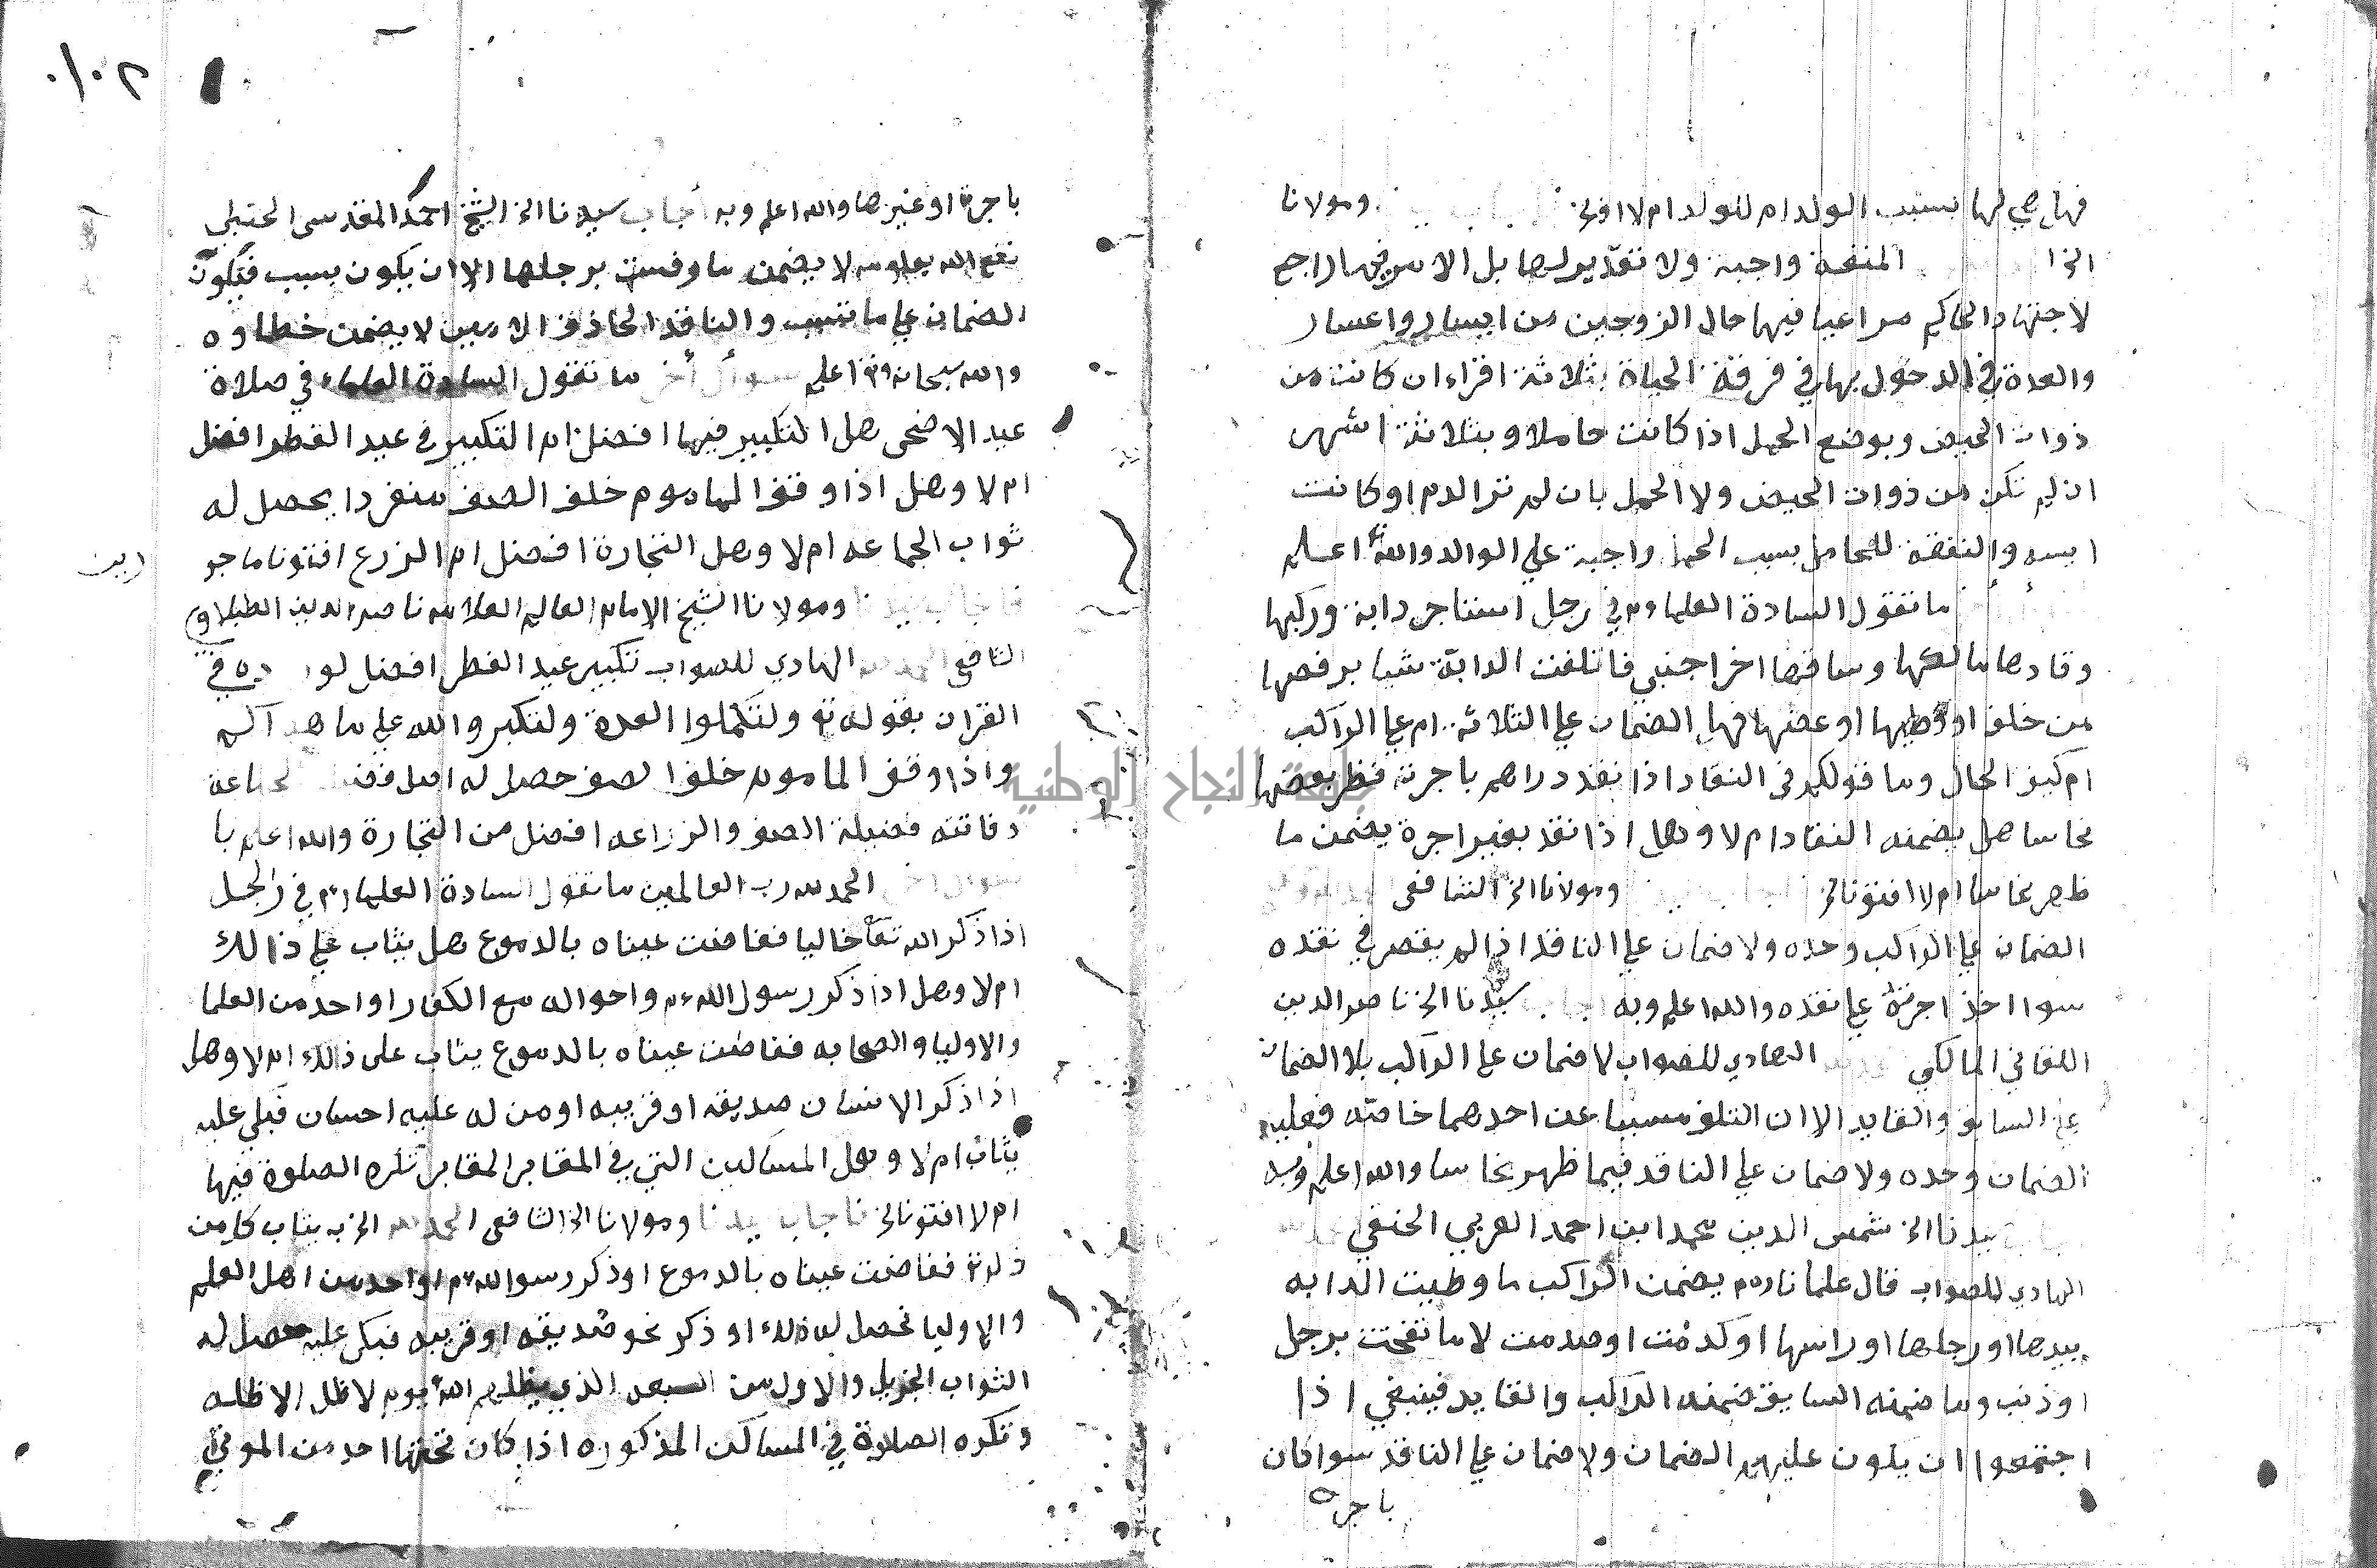 فهل هي لها بسبب الولد ام للولد ام لا افتونا ومولانا
الخ النفقة واجبة ولا تقدير لها بل الامر فيها راجع
لاجتهاد الحاكم مراعيا فيها حال الزوجين من ايسار واعسار
والعدة في المدخول بها في فرقة الحياة بثلاثة اقراء ان كانت من
ذوات الحيض وبوضع الحمل اذا كانت حاملا وبثلاثة اشهر
ان لم تكن من ذوات الحيض ولا الحمل بان لم تر الدم او كانت
ايسه والنفقة للحامل بسبب الحمل واجبة علي الوالد والله اعلم
ما تقول السادة العلماء في رجل استاجر دابة وركبها
وقادها مالكها وساقها اخر اجنبي فاتلفت الدابة شيا برفصها
من خلف او وطيها او عضها فهل الضمان علي الثلاثة ام علي الراكب
ام كيف الحال وما قولكم في النقاد اذا نقد دراهم باجرة فظهر بعضها
نحاسا هل يضمنه النقاد ام لا وهل اذا نقد بغير اجرة يضمن ما
ظهر نحاسا ام لا افتونا ومولانا الخ الشافعي
الضمان علي الراكب وحده ولا ضمان علي الناقد اذا لم يقصر في نقده
سوا اخذ اجرة علي نقده والله اعلم وبه اجاب سيدنا الخ ناصر الدين
اللقاني المالكي الهادي للصواب لا ضمان علي الراكب بلا الضمان
علي السايق والقايد الا ان التلف مسببا عن احدهما خاصة فعليه
الضمان وحده ولا ضمان علي الناقد فيما ظهر نحاسا والله اعلم وبه
سيدنا الخ شمس الدين محمد ابن احمد الغربي الحنفي
الهادي للصواب قال علمانا رم يضمن الراكب ما وطيت الدابه
بيدها او رجلها او راسها او كدمت او صدمت لا ما نفحت برجل
او ذنب وما ضمنه السايق ضمنه الراكب والقايد فينبغي اذا
اجتمعوا ان يكون عليهم الضمان ولا ضمان علي الناقد سوا كان
باجرة
٠١٠٢
باجرة او غيرها والله اعلم وبه أجاب سيدنا الخ الشيخ احمد المقدسي الحنبلي
نفع الله بعلومه لا يضمن ما رفست برجلها الا ان يكون بسبب فيكون
الضمان علي ما تسبب والناقد الحاذق الامين لا يضمن خطاوه
والله سبحانه وتعا اعلم سوأل أخر ما تقول السادة العلماء في صلاة
عيد الاضحى هل التكبير فيها افضل ام التكبير في عيد الفطر افضل
ام لا وهل اذا وقف الماموم خلف الصف منفردا يحصل له
ثواب الجماعه ام لا وهل التجارة افضل ام الزرع افتونا ماجور
ين
فاجاب سيدنا ومولانا الشيخ الامام العالم العلامه ناصر الدين الطبلاوي
الشافعي الحمد لله الهادي للصواب تكبير عيد الفطر افضل لو ده في
القران بقوله تع ولتكملوا العدة ولتكبروا الله علي ما هداكم
واذا وقف الماموم خلف الصف حصل له اصل فضل الجماعة
وفاتته فضيلة الصف والزراعه افضل من التجارة والله اعلم با
سوال اخر الحمد لله رب العالمين ما تقول السادة العلماء رم في رجل
اذا ذكر الله تعا خاليا ففاضت عيناه بالدموع هل يثاب علي ذالك
ام لا وهل اذا ذكر رسول الله م واحواله مع الكفار او احد من العلما
والاوليا والصحابه ففاضت عيناه بالدموع يثاب على ذلك ام لا وهل
اذا ذكر الانسان صديقه او قريبه او من له عليه احسان فبكي عليه
يثاب ام لا وهل المساكين التي في المقابر المقابر تكره الصلوة فيها
ام لا افتونا الخ فاجاب سيدنا ومولانا الخ الشافعي الحمد لله الخ به يثاب كل من
ذكر الله ففاضت عيناه بالدموع او ذكر رسول الله م او احد من اهل العلم
والاوليا فحصل له ذلك او ذكر نحو صديقه او قريبه فبكى عليه حصل له
الثواب الجزيل والاول من السبعه الذي يظلهم الله يوم لا ظل الا ظله
وتكره الصلاة في المساكن المذكوره اذا كان تحتها احد من الموتي
جامعة النجاح الوطنية